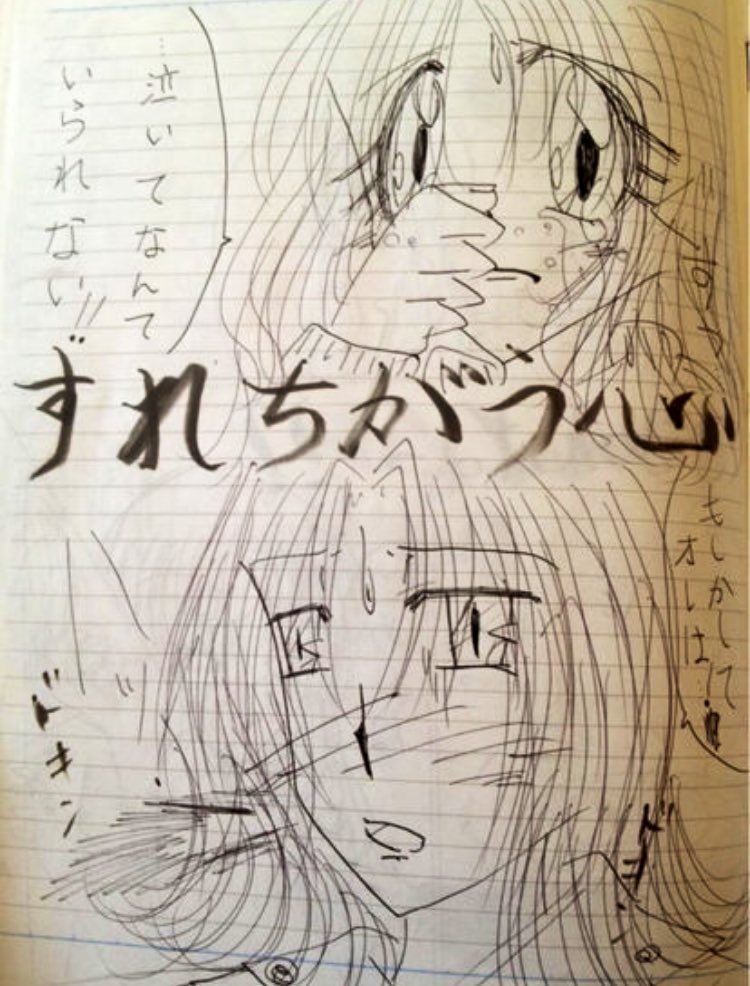 …泣いてなんて
いられない!!
すれちがう心
もしかして
オレは…!?
ドキン
ドキン